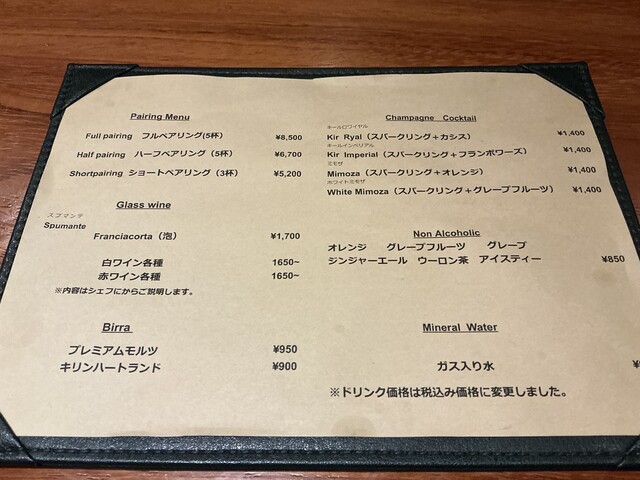 Pairing Menu
Full pairing フルペアリング(5杯) ¥8,500
Half pairing ハーフペアリング（5杯） ¥6,700
Shortpairing ショートペアリング（3杯） ¥5,200
Glass wine
スプマンテ
Spumante
Franciacorta（泡） ¥1,700
白ワイン各種 1650~
赤ワイン各種 1650~
※内容はシェフにからご説明します。
Birra
プレミアムモルツ ¥950
キリンハートランド ¥900
Champagne Cocktail
キールロワイヤル
Kir Ryal（スパークリング＋カシス） ¥1,400
キールインペリアル
Kir Imperial（スパークリング＋フランボワーズ） ¥1,400
ミモザ
Mimoza（スパークリング＋オレンジ） ¥1,400
ホワイトミモザ
White Mimoza（スパークリング＋グレープフルーツ） ¥1,400
Non Alcoholic
オレンジ グレープフルーツ グレープ
ジンジャーエール ウーロン茶 アイスティー ¥850
Mineral Water
ガス入り水
※ドリンク価格は税込み価格に変更しました。